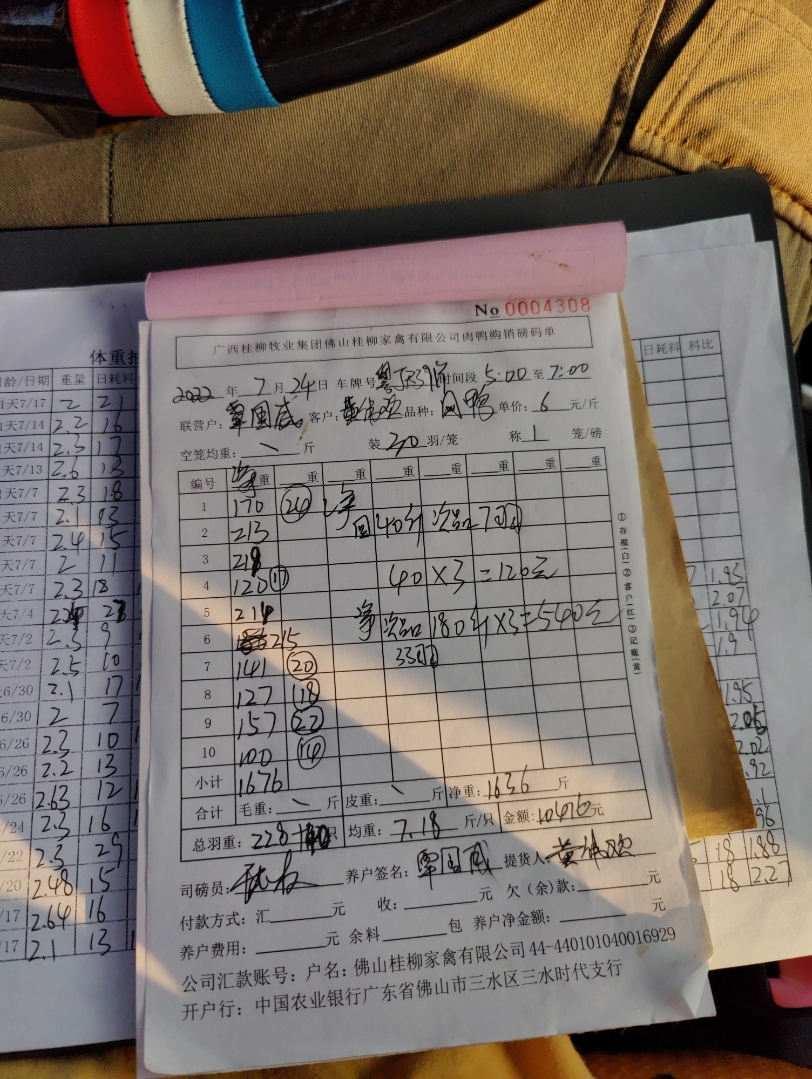 No 0004308
广西桂柳牧业集团佛山桂柳家禽有限公司肉鸭购销磅码单
2022 年 7 月 24 日 车牌号 时间段 5:00 至 7:00
联营户: 覃国威 客户: 品种: 肉鸭 单价: 6 元/斤
空笼均重: 斤 装 30 羽/笼 称 1 笼/磅
编号 净重 重 重 重 重 重 重 重
1 170 24 净
回40斤 次品7只
2 213
3 218
4 120 17 40×3=120元
5 214
净 次品180斤×3=540元
6 215
33只
7 141 20
8 127 18
9 157 22
10 100 14
小计 1676
合计 毛重: 斤 皮重: 斤 净重: 1636 斤
总羽重: 228 只 均重: 7.18 斤/只 金额: 元
司磅员: 养户签名: 覃国威 提货人:
付款方式: 汇 元 收: 元 欠(余)款: 元
养户费用: 元 余料 包 养户净金额: 元
公司汇款账号: 户名: 佛山桂柳家禽有限公司 44-440101040016929
开户行: 中国农业银行广东省佛山市三水区三水时代支行
①存根(白)②客户(红)③记账(黄)
体重
龄/日期 重量 日耗料
天7/17 2 21
天7/14 2.2 16
天7/14 2.3 17
天7/13 2.6 13
天7/7 2.3 18
天7/7 2.1 13
天7/7 2.4 15
天7/7 2 11
天7/7 2.3 18
天7/4
天7/2 2.3 9
天7/2 2.5 10
6/30 2.1 17
6/30 2 7
6/26 2.3 10
6/26 2.2 13
6/26 2.63 12
/24 2.3 16
/22 2.3 29
/20 2.48 15
/17 2.64 16
/17 2.1 13
日耗料 料比
1.95
2.07
1.94
1.9
1.95
2.05
2.02
.92
.1
.98
18 1.88
18 2.27